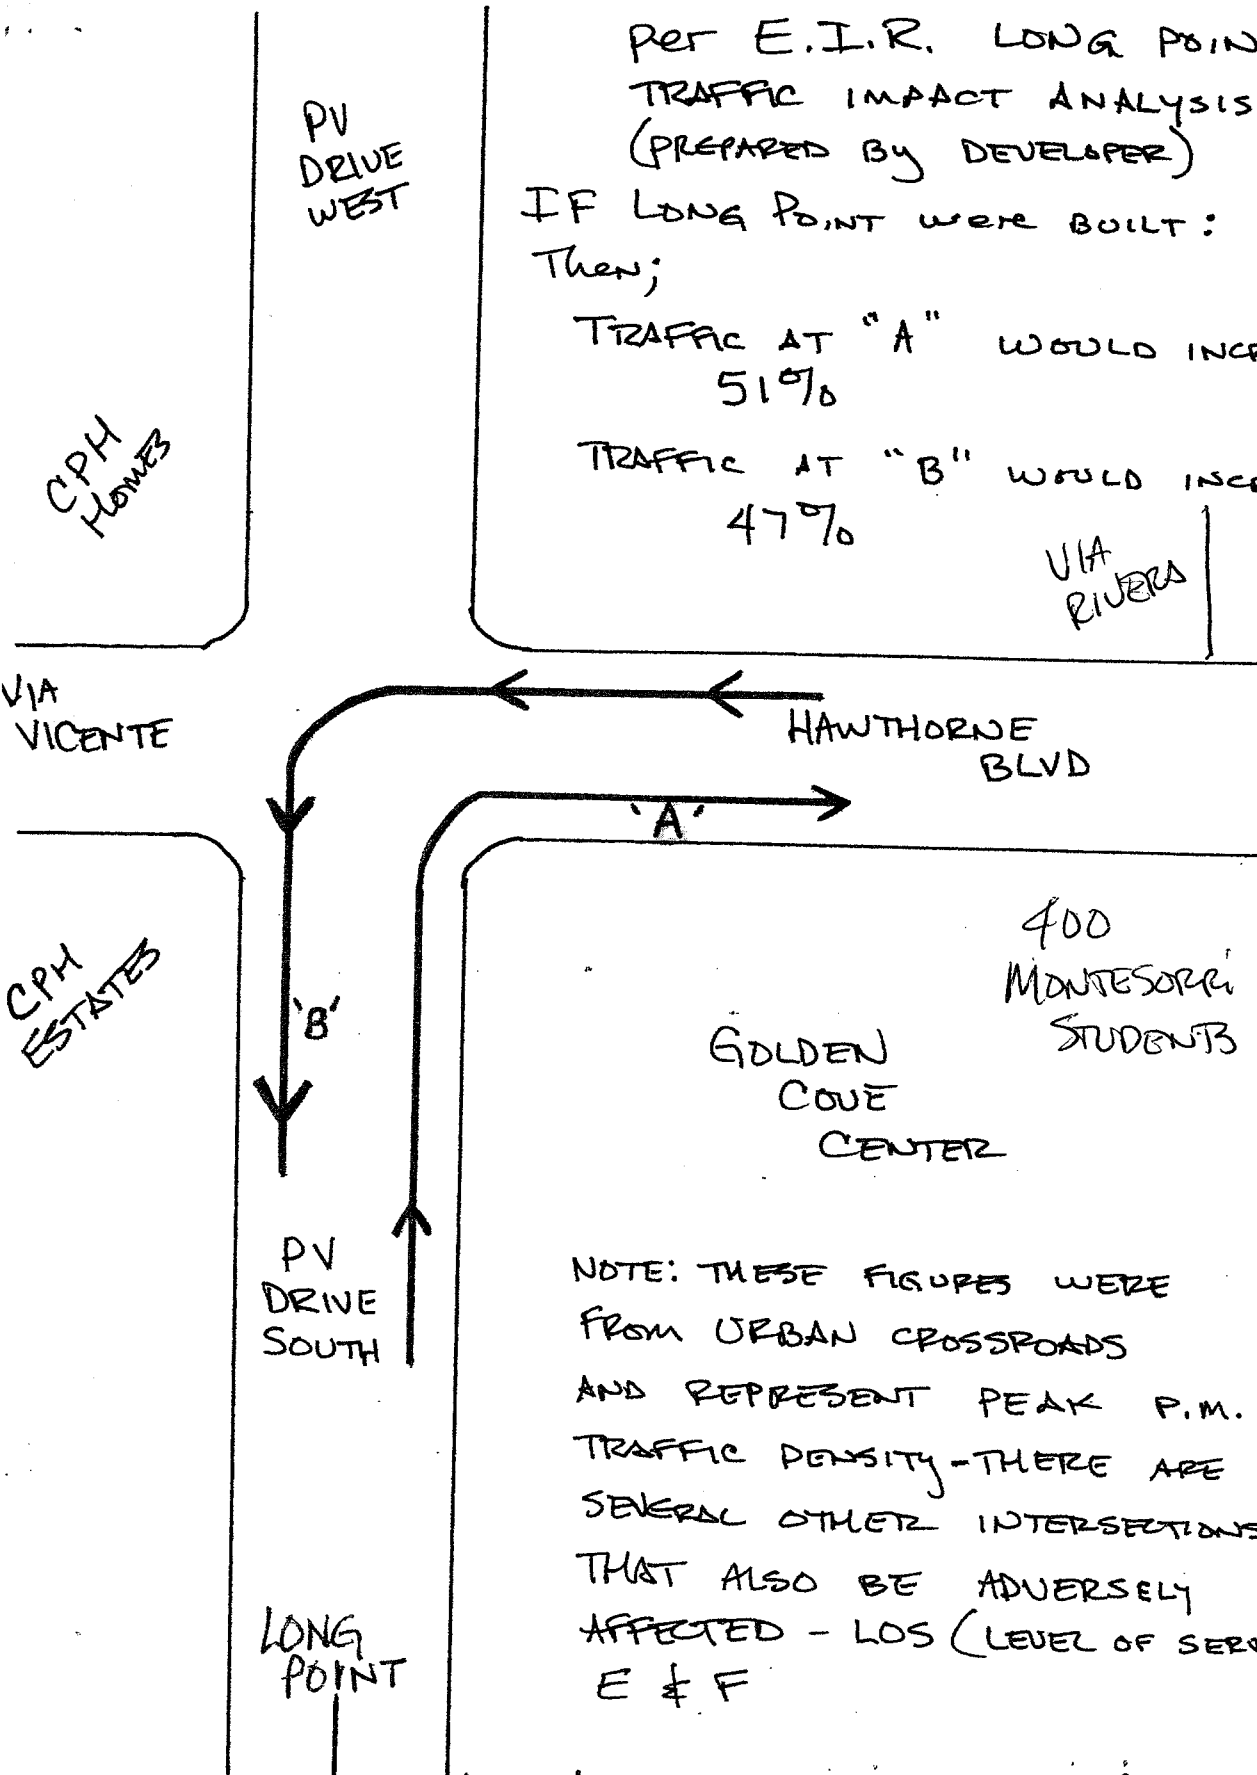 per E.I.R. LONG POIN
TRAFFIC IMPACT ANALYSIS
(PREPARED By DEVELOPER)
IF LONG POINT were BUILT:
Then;
TRAFFIC AT "A" WOULD INCR
51%
TRAFFIC AT "B" WOULD INCR
47%
PV
DRIVE
WEST
CPH
HOMES
VIA
RIVERA
VIA
VICENTE
HAWTHORNE
BLVD
'A'
CPH
ESTATES
'B'
400
MONTESORRI
STUDENTS
GOLDEN
COVE
CENTER
PV
DRIVE
SOUTH
NOTE: THESE FIGURES WERE
FROM URBAN CROSSROADS
AND REPRESENT PEAK P.M.
TRAFFIC DENSITY - THERE ARE
SEVERAL OTHER INTERSECTIONS
THAT ALSO BE ADVERSELY
AFFECTED - LOS (LEVEL OF SERV
E & F
LONG
POINT